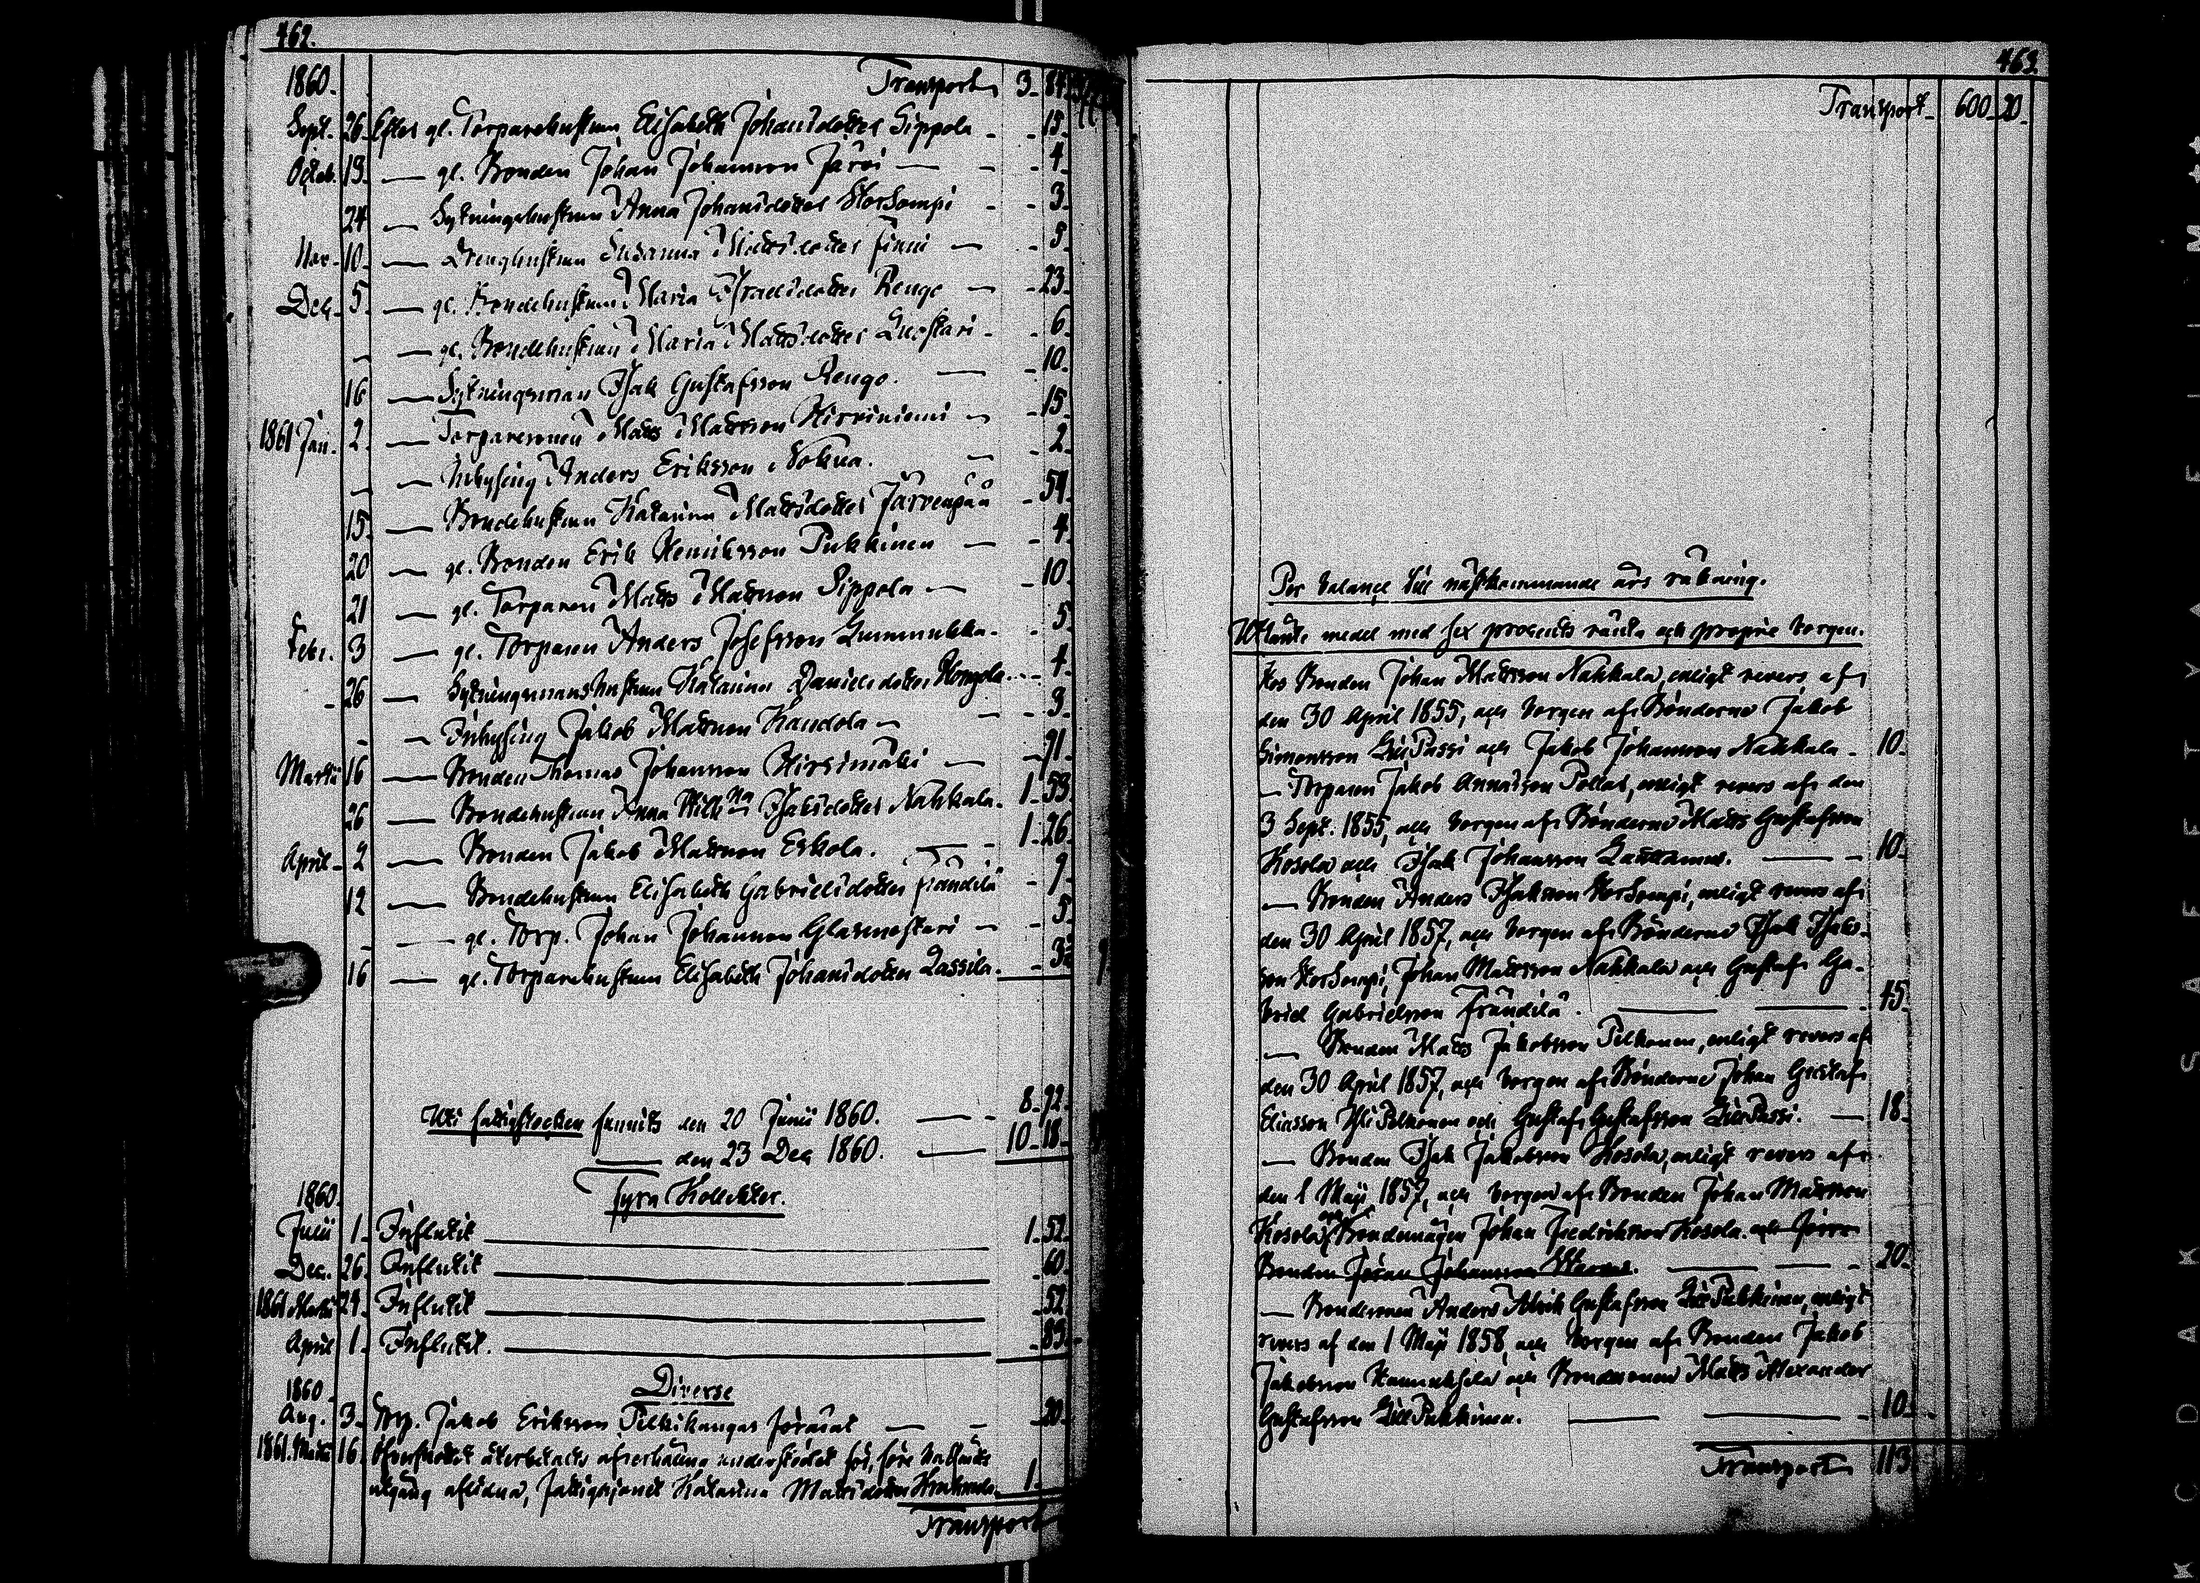 462.
1860. Transport 3. 84
Sept. 26. Efter gl. Torparehustrun Elisabeth Johansdotter Sippola - - 15.
Octob. 19. — gl. Bonden Johan Johansson Järvi — - - 4.
24 — Sytningshustrun Anna Johansdotter Storsompi - - 3.
Nov. 10. — Drenghustrun Susanna Mattsdotter Finni — - 5.
Dec. 5. — gl. Bondehustrun Maria Isaksdotter Rengo — - 23.
- — gl. Bondehustrun Maria Mattsdotter - - 6.
16 — Sytningsman Isak Gustafsson Rengo. — - 10.
1861 Jan. 2. — Torparesonen Matts Mattsson Hirviniemi — - 15.
- — Inhysing Anders Eriksson Nokua. — - 2.
15. — Bondehustrun Katarina Mattsdotter Järvenpää - 54.
20 — gl. Bonden Erik Henriksson Pukkinen — - 4.
21 — gl. Torparen Matts Mattsson Sippola — - 10.
Febr. 3 — gl. Torparen Anders Josefsson Lummukka. - 5.
- 26 — Sytningsmanshustrun Katarina Danielsdotter - 4.
- — Inhysing Jakob Mattsson Kandola — - 9.
Martii 16 — Bonden Thomas Johansson Hirsimäki — - 91.
26 — Bondehustrun Anna Wilhna Isaksdotter Nahkala. 1. 53.
April - 2 — Bonden Jakob Mattsson Eskola. — 1. 26.
12 — Bondehustrun Elisabeth Gabrielsdotter Frändilä - 9.
- — gl. Torp. Johan Johansson Glasmestari — - 5.
16 — gl. Torparehustrun Elisabeth Johansdotter Lassila. - 32
Uti fattigstocken funnits den 20 Junii 1860. — 8. 72.
— den 23 Dec 1860. — 10. 18.
Fyra Kollekter.
1860.
Junii 1. Influtit — 1. 52.
Dec. 26. Influtit — 60.
1861 Martii 24. Influtit — 52.
April 1. Influtit. — 83.
Diverse
1860.
Aug. 3. Torp. Jakob Eriksson Pelkikangas förärat — - 20.
1861. Martii 16. återbetalts af erhållna understödet för, före
utgång aflidna, fattighjonet Katarina Mattsdotter 1.
Transport
463.
Transport. 600. 20.
Per balance till nästkommande års räkning.
Utlånte medel med sex procents ränta och proprie borgen.
Hos Bonden Johan Mattsson Nahkala, enligt revers af
den 30 April 1855, och borgen af Bönderne Jakob
Simonsson LillPassi och Jakob Johansson Nahkala. 10.
— Torparen Jakob Annaison Pollas, enligt revers af den
3 Sept. 1855, och borgen af Bönderne Matts Gustafsson
Kosola och Isak Johansson Lauttamus. — 10.
— Bonden Anders Isaksson Storsompi, enligt revers af
den 30 April 1857, och borgen af Bönderne Isak Isaks-
son Storsompi, Johan Mattsson Nahkala och Gustaf Ga-
briel Gabrielsson Frändilä. — 45.
— Bonden Matts Jakobsson Pelkonen, enligt revers af
den 30 April 1857, och borgen af Bönderne Johan Gustaf
Eliasson YliPelkonen och Gustaf Gustafsson LillPassi. — 18.
— Bonden Isak Jakobsson Kosola, enligt revers af
den 1 Maji 1857, och borgen af Bonden Johan Mattsson
Kosola och Bondemågen Johan Fredriksson Kosola. och förre
Bonden Jöran Johansson — 20.
— Bondesonen Anders Ulrik Gustafsson LillPukkinen, enligt
revers af den 1 Maji 1858, och borgen af Bonden Jakob
Jakobsson och Bondesonen Matts Alexander
Gustafsson LillPukkinen. — 10.
Transport 113